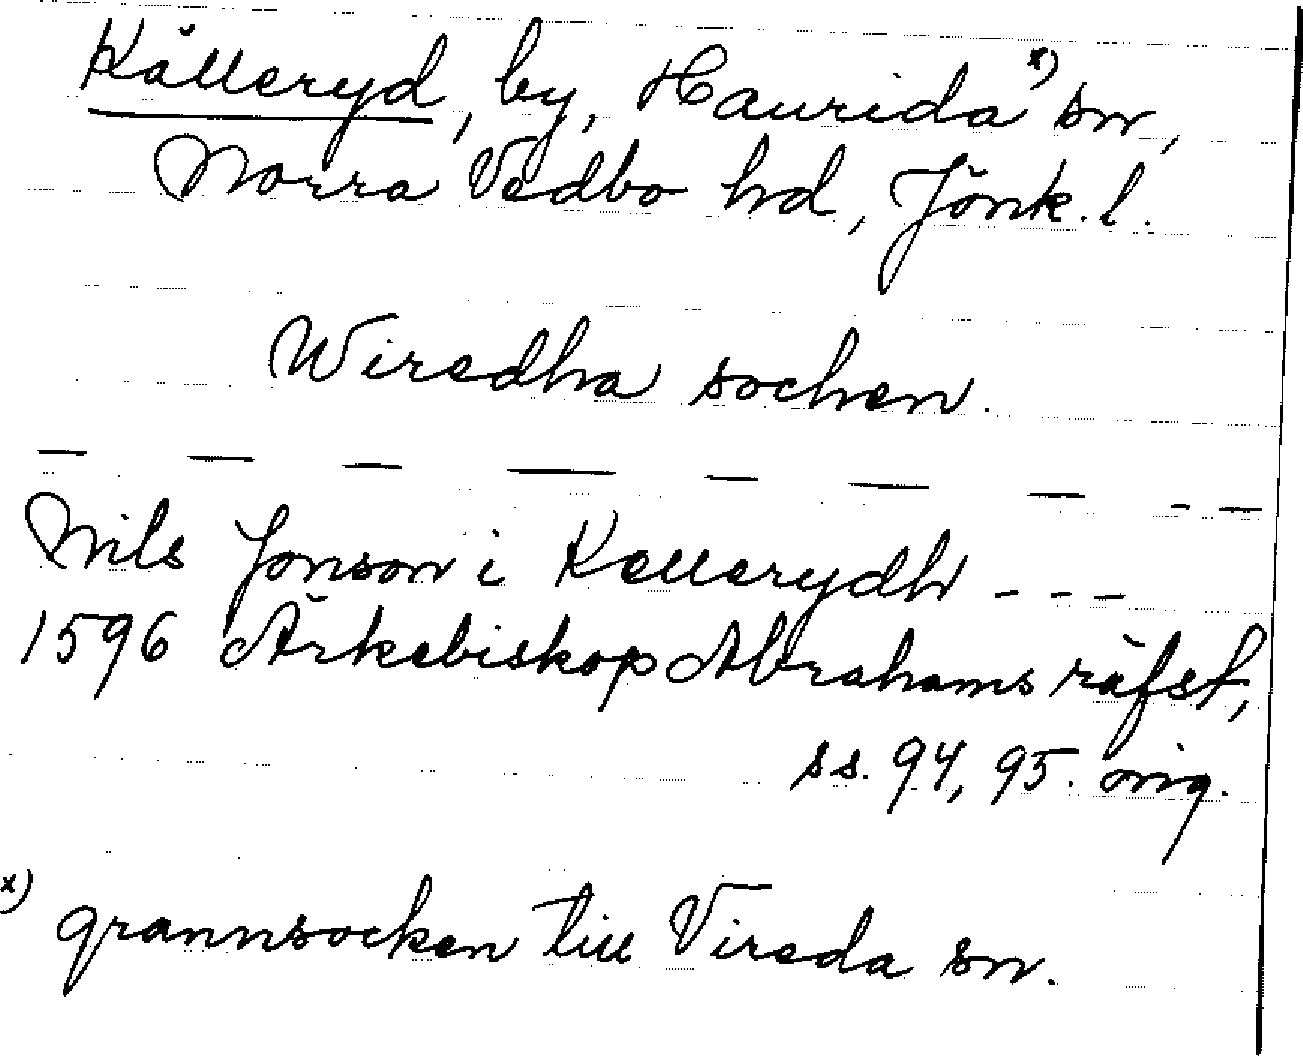 Källeryd, by, Haurida x) sn,
Norra Vedbo hd, Jönk. l.
Wiredha sochen.
— — — — — — — - —
Nils Jonson i Kellerydh - - -
1596 Ärkebiskop Abrahams räfst,
ss. 94, 95. orig.
x) grannsocken till Vireda sn.